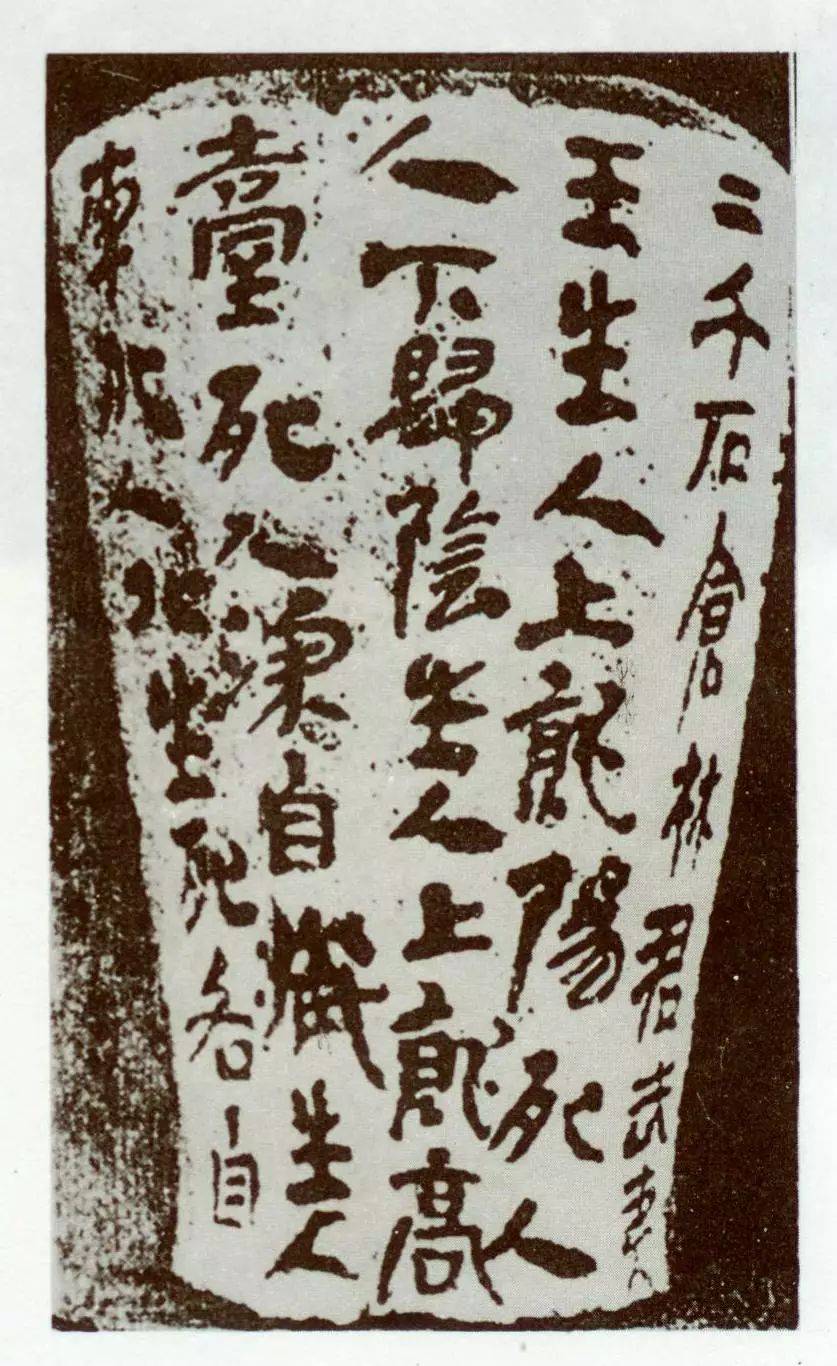 二千石倉林君武夷
王生人上就陽死人
人下歸陰生人上就高
臺死人深自藏生人
南死人北生死各自